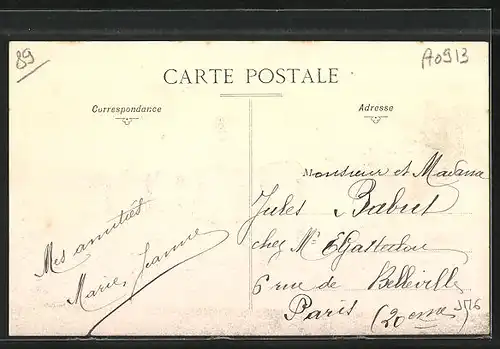 89
A0913
CARTE POSTALE
Correspondance
Adresse
Monsieur et Madame
Jules Babut
chez Mr
6 rue de Belleville
Paris (20eme)
Mes amitiés
Marie Jeanne